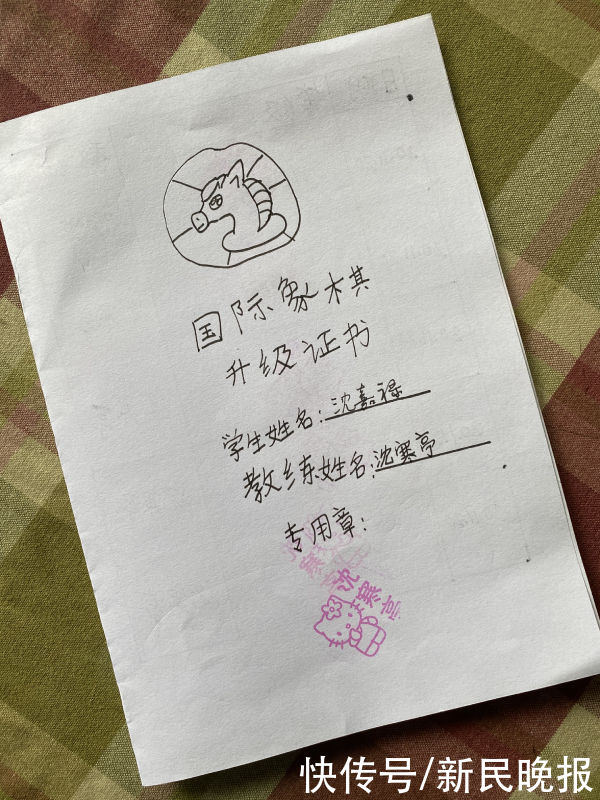 国际象棋
升级证书
学生姓名:沈嘉禄
教练姓名:沈寒亭
专用章:
沈寒亭
快传号/新民晚报